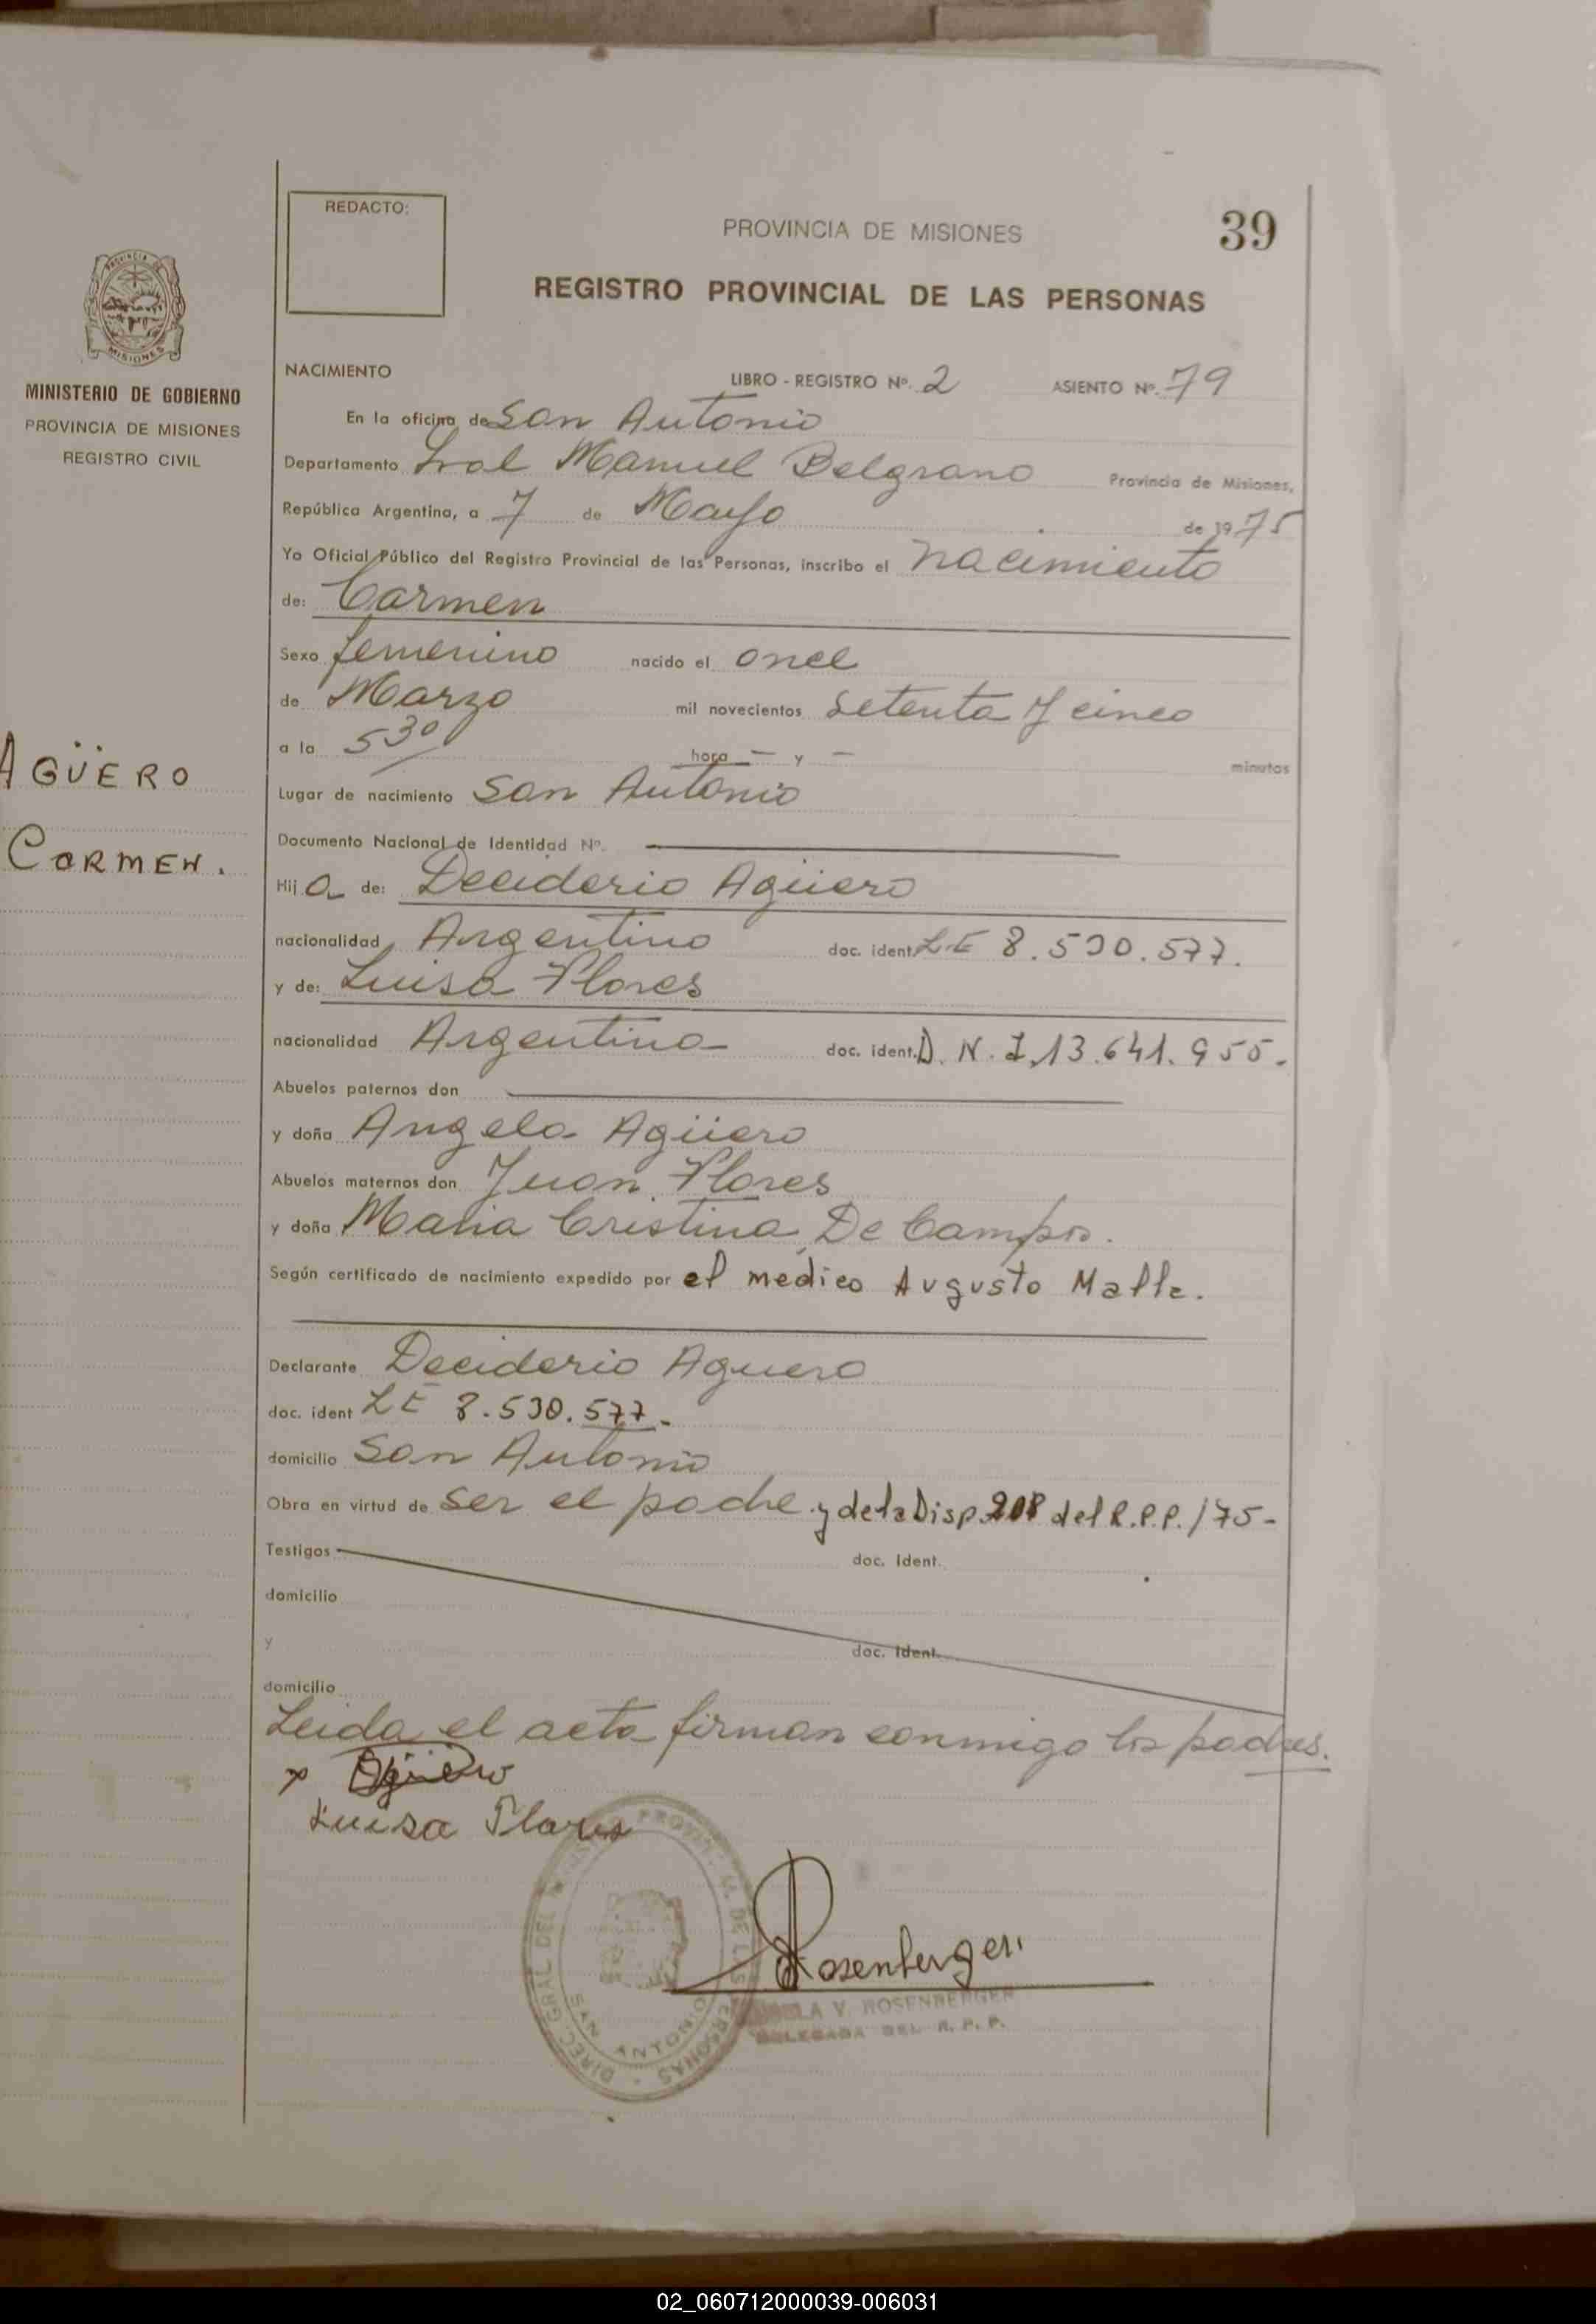 REDACTO:
PROVINCIA DE MISIONES
39
REGISTRO PROVINCIAL DE LAS PERSONAS
MISIONES
MINISTERIO DE GOBIERNO
PROVINCIA DE MISIONES
REGISTRO CIVIL
AGÜERO
CARMEN.
NACIMIENTO LIBRO - REGISTRO Nº. 2 ASIENTO Nº. 79
En la oficina de San Antonio
Departamento Gral Manuel Belgrano Provincia de Misiones,
República Argentina, a 7 de Mayo de 1975
Yo Oficial Público del Registro Provincial de las Personas, inscribo el nacimiento
de: Carmen
Sexo femenino nacido el once
de Marzo mil novecientos setenta y cinco
a la 5 30 hora — y — minutos
Lugar de nacimiento San Antonio
Documento Nacional de Identidad Nº.
Hija de: Deciderio Agüero
nacionalidad Argentino doc. ident. L.E 8.530.577.
y de: Luisa Flores
nacionalidad Argentina doc. ident. D.N.I. 13.641.955.-
Abuelos paternos don
y doña Angela Agüero
Abuelos maternos don Juan Flores
y doña Maria Cristina De Campos.
Según certificado de nacimiento expedido por el médico Augusto Malle.
Declarante Deciderio Aguero
doc. ident LE 8.530.577.-
domicilio San Antonio
Obra en virtud de ser el padre y de la Disp. 208 del R.P.P./75-
Testigos doc. Ident.
domicilio
y doc. Ident.
domicilio
Leida el acta firman conmigo los padres.
x Agüero
Luisa Flores
Rosenberger
V. ROSENBERGER
DELEGADA DEL R. P. P.
DIREC. GRAL DEL REGISTRO PROVINCIAL DE LAS PERSONAS
SAN ANTONIO
02_060712000039-006031